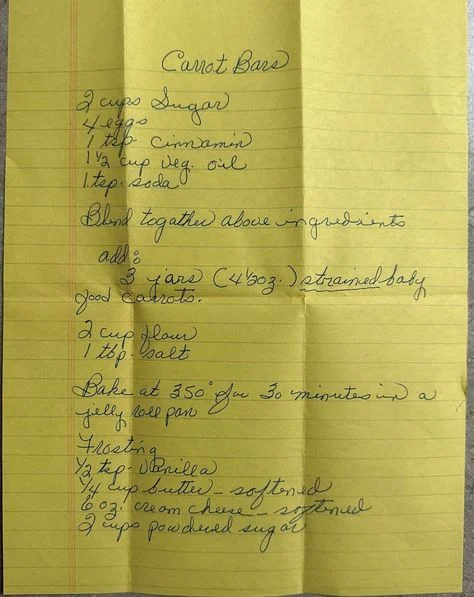 Carrot Bars
2 cups Sugar
4 eggs
1 tsp cinnamin
1 1/2 cup veg. oil
1 tsp. soda
Blend togather above ingredients
add:
3 jars (4 1/2 oz.) strained baby
food carrots.
2 cup flour
1 tsp. salt
Bake at 350° for 30 minutes in a
jelly roll pan
Frosting
1/2 tsp. vanilla
1/4 cup butter - softened
6 oz. cream cheese - softened
2 cups powdered sugar